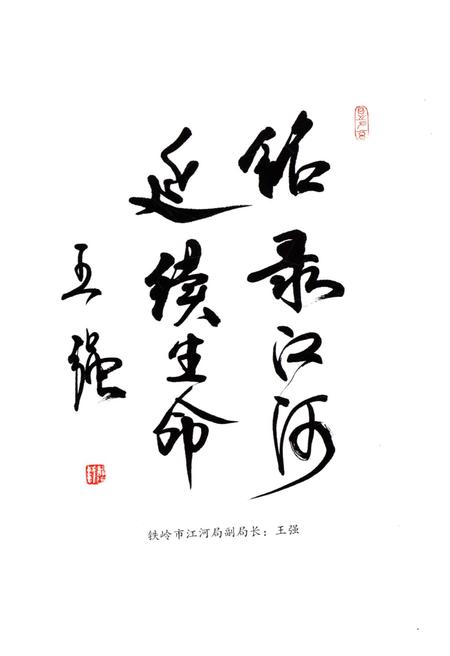 铭录江河
延续生命
王强
铁岭市江河局副局长：王强